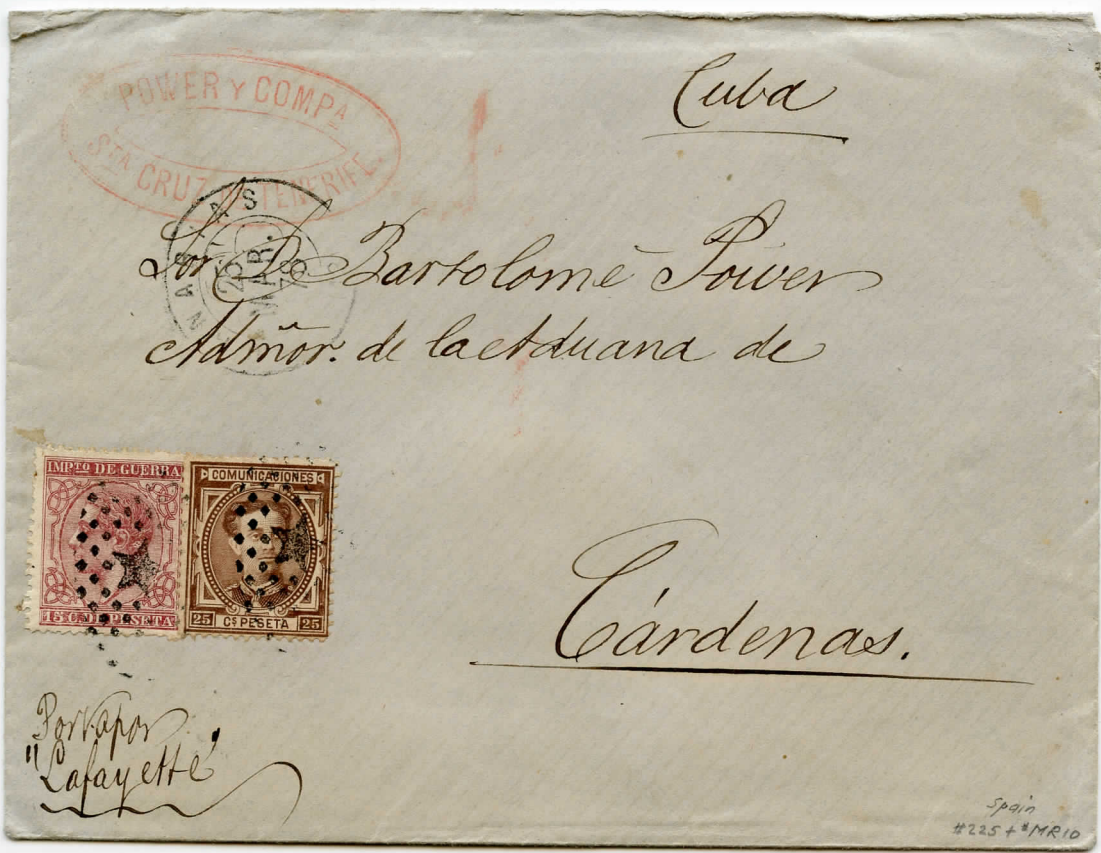 POWER Y COMPA
STA CRUZ TENERIFE.
Cuba
CANARIAS
25
MAR.
78
Sor. D. Bartolomé Power
Admõr. de la Aduana de
IMPTO DE GUERRA
15 C. DE PESETA
COMUNICACIONES
25 CS PESETA 25
Cárdenas.
Por vapor
"Lafayette"
Spain
#225 + #MR10